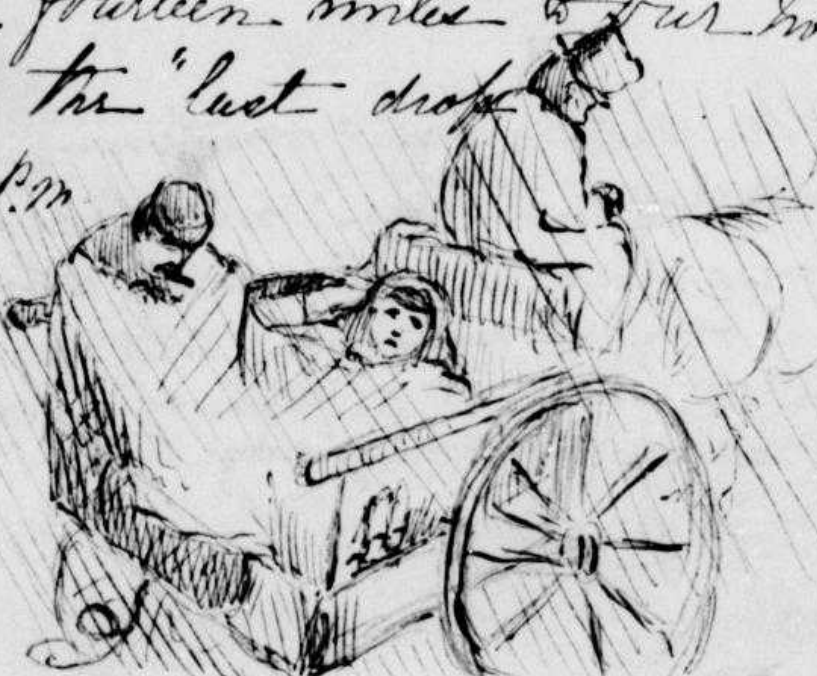 fourteen miles to our
the "last drop
P.M